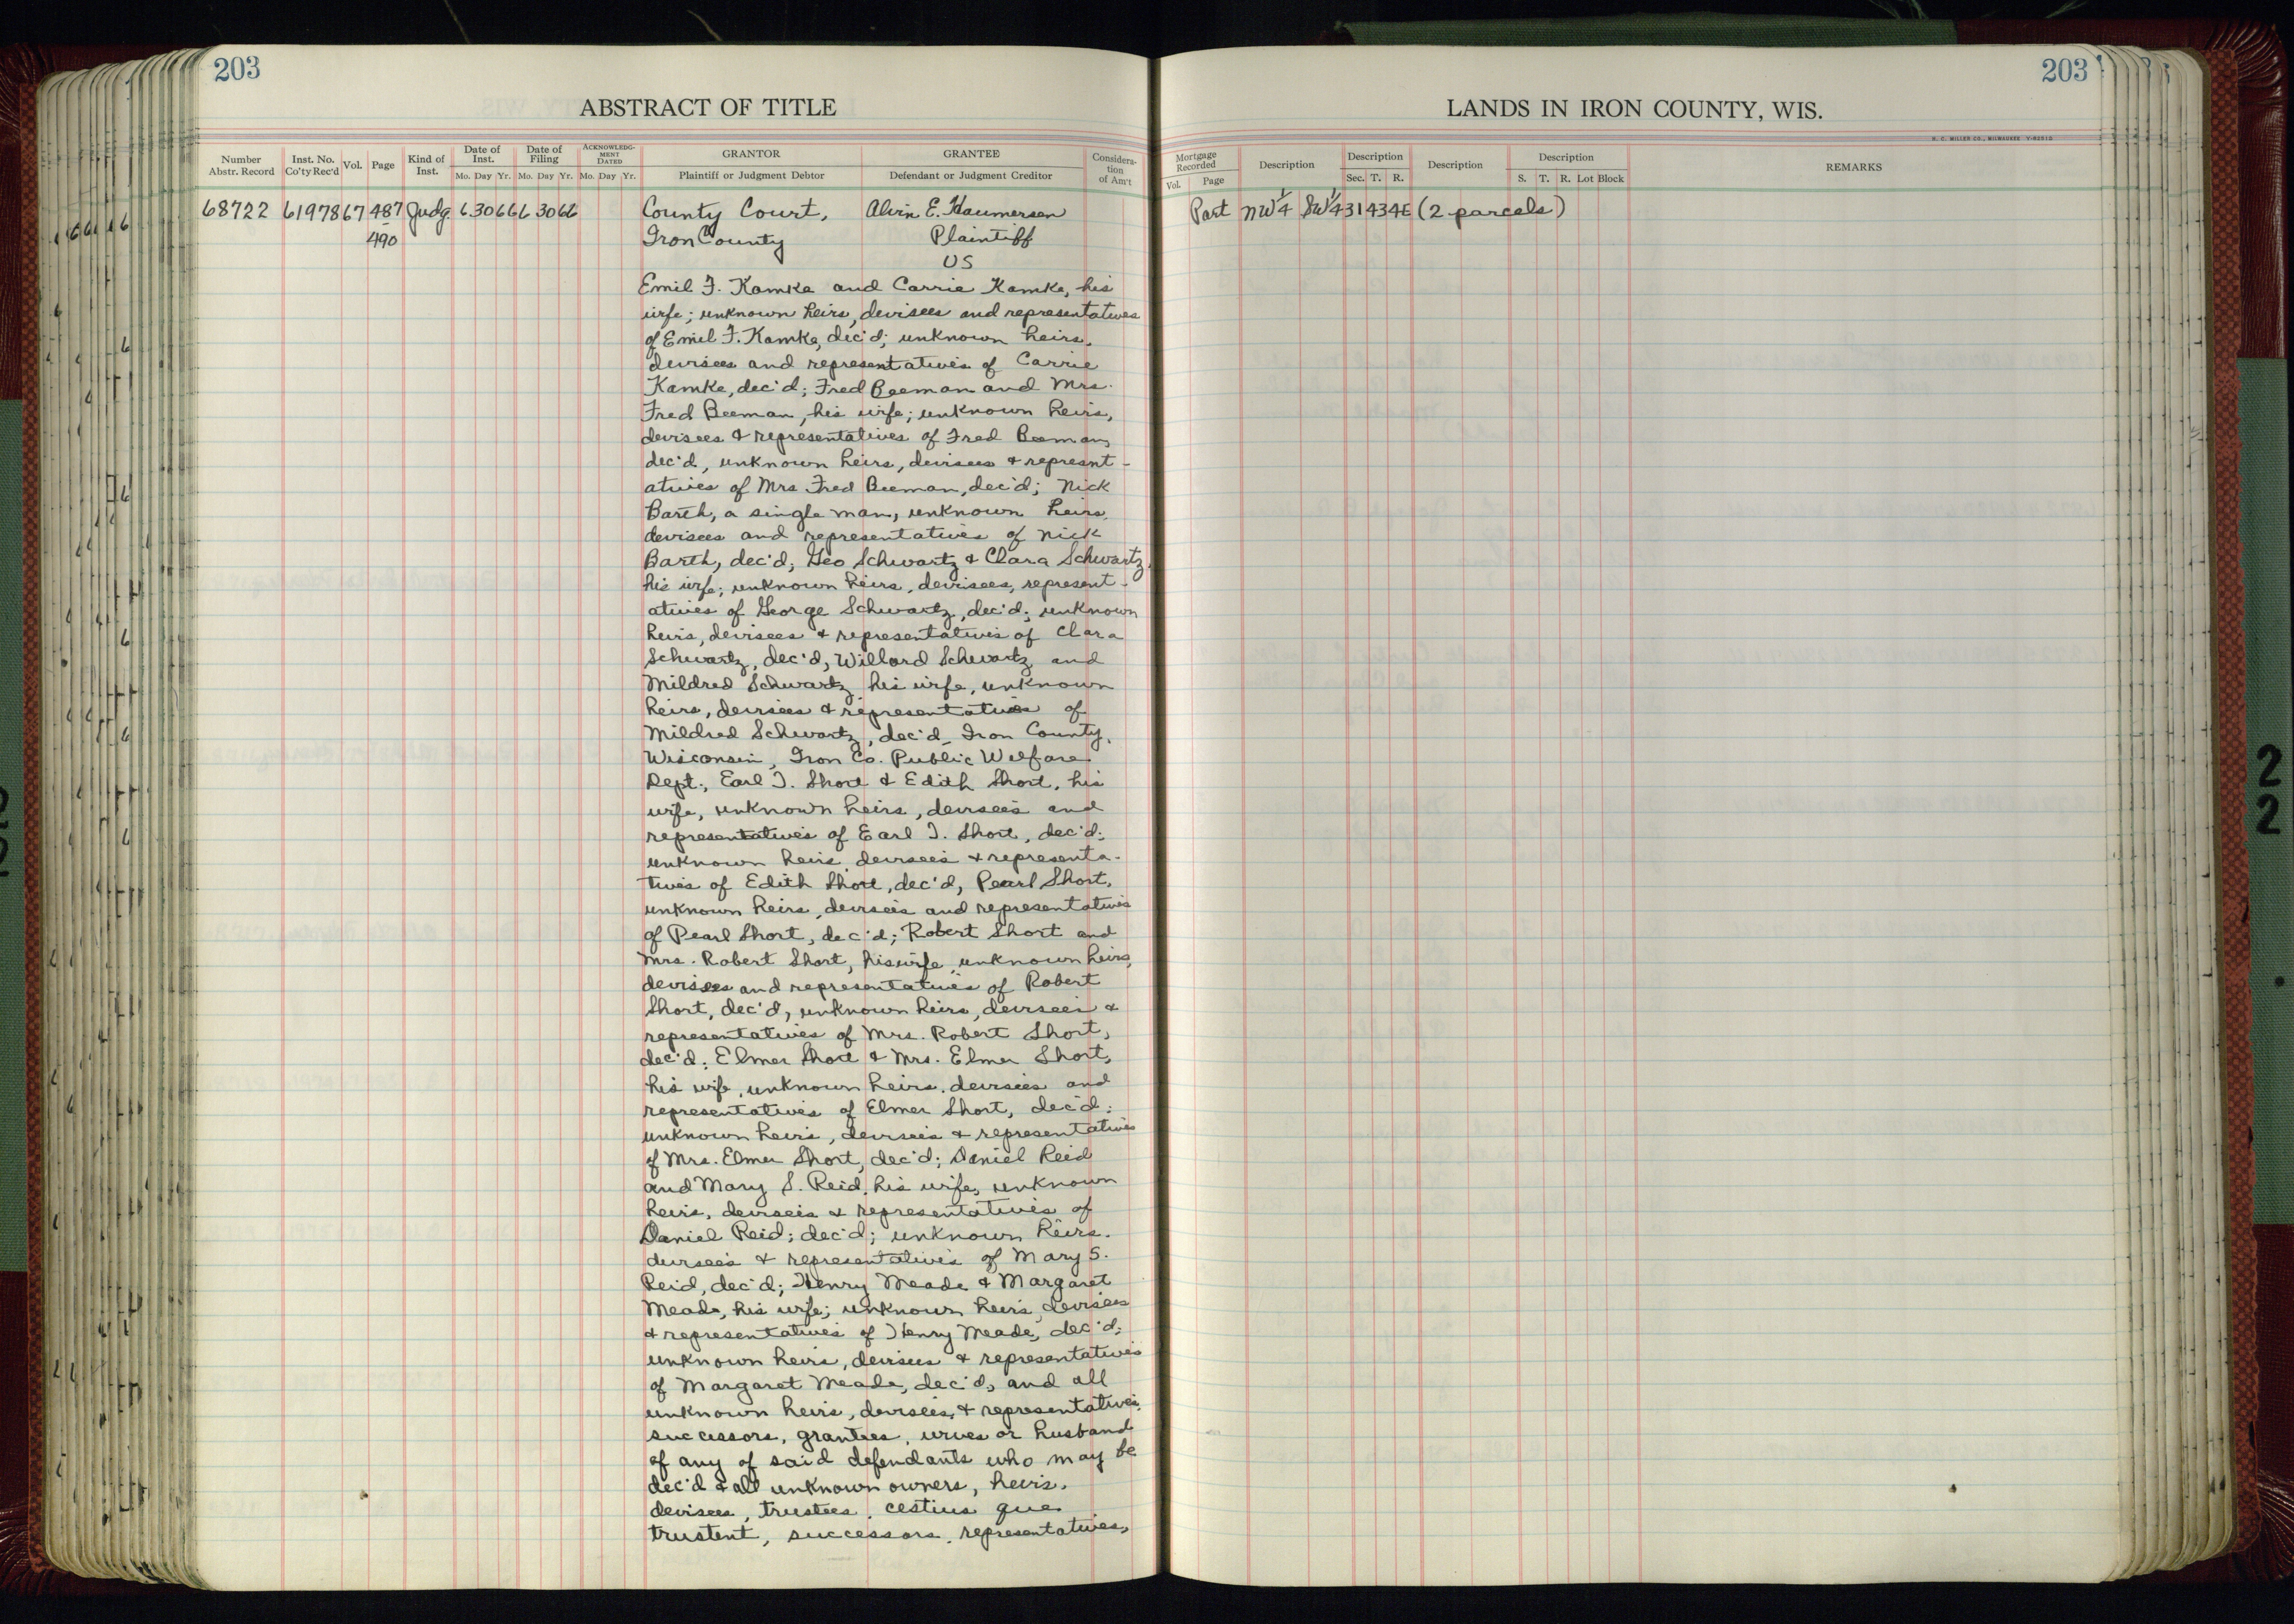 203
203
ABSTRACT OF TITLE
LANDS IN IRON COUNTY, WIS.
H. C. MILLER CO., MILWAUKEE
Number Abstr. Record
Inst. No. Co'ty Rec'd
Vol.
Page
Kind of Inst.
Date of Inst.
Mo. Day Yr.
Date of Filing
Mo. Day Yr.
ACKNOWLEDG-MENT DATED
Mo. Day Yr.
GRANTOR
Plaintiff or Judgment Debtor
GRANTEE
Defendant or Judgment Creditor
Considera-tion of Am't
Mortgage Recorded
Vol. Page
Description
Description
Sec. T. R.
Description
Description
S. T. R. Lot Block
REMARKS
68722 61978 67 487 Judg. 6 30 66 6 30 66 County Court, Alvin E. Haumerson Part NW 1/4 SW 1/4 31 43 4E (2 parcels)
490 Iron County Plaintiff
vs
Emil F. Kamke and Carrie Kamke, his
wife; unknown heirs, devisees and representatives
of Emil F. Kamke, dec'd; unknown heirs,
devisees and representatives of Carrie
Kamke, dec'd; Fred Beeman and Mrs.
Fred Beeman, his wife; unknown heirs,
devisees & representatives of Fred Beeman,
dec'd, unknown heirs, devisees & represnt-
atives of Mrs Fred Beeman, dec'd; Nick
Barth, a single man, unknown heirs,
devisees and representatives of Nick
Barth, dec'd; Geo Schwartz & Clara Schwartz,
his wife; unknown heirs, devisees, represent-
atives of George Schwartz, dec'd; unknown
heirs, devisees & representatives of Clara
Schwartz, dec'd, Willard Schwartz and
Mildred Schwartz his wife, unknown
heirs, devisees & representatives of
Mildred Schwartz, dec'd, Iron County,
Wisconsin, Iron Co. Public Welfare
Dept., Earl T. Short & Edith Short, his
wife, unknown heirs, devisees and
representatives of Earl T. Short, dec'd;
unknown heirs devisees & representa-
tives of Edith Short, dec'd, Pearl Short,
unknown heirs, devisees and representatives
of Pearl Short, dec'd; Robert Short and
Mrs. Robert Short, his wife, unknown heirs,
devisees and representatives of Robert
Short, dec'd, unknown heirs, devisees &
representatives of Mrs. Robert Short,
dec'd; Elmer Short & Mrs. Elmer Short,
his wife, unknown heirs, devisees and
representatives of Elmer Short, dec'd;
unknown heirs, devisees & representatives
of Mrs. Elmer Short, dec'd; Daniel Reid
and Mary S. Reid, his wife, unknown
heirs, devisees & representatives of
Daniel Reid; dec'd; unknown heirs,
devisees & representatives of Mary S.
Reid, dec'd; Henry Meade & Margaret
Meade, his wife; unknown heirs, devisees
& representatives of Henry Meade, dec'd;
unknown heirs, devisees & representatives
of Margaret Meade, dec'd, and all
unknown heirs, devisees, & representatives,
successors, grantees, wives or husband
of any of said defendants who may be
dec'd & all unknown owners, heirs,
devisees, trustees, cestius que
trustent, successors, representatives,
2
2